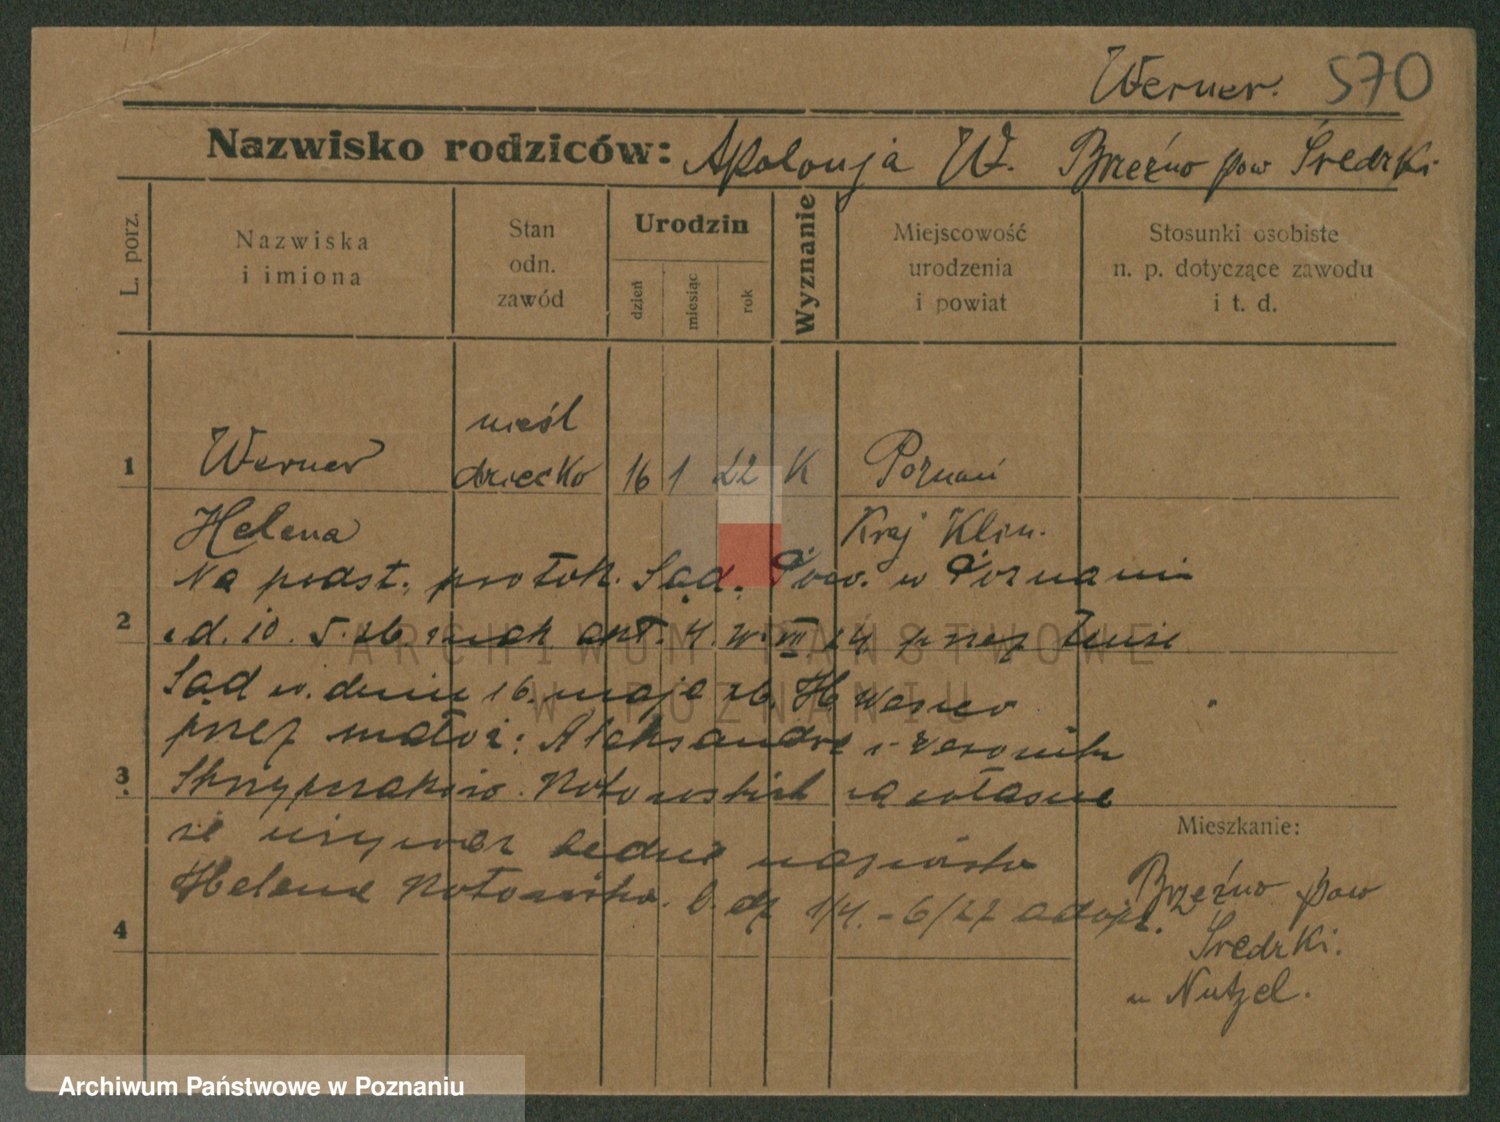 Werner. 570
Nazwisko rodziców: Apolonja W. Brzeźno pow Średzki
L. porz.
Nazwiska i imiona
Stan odn. zawód
Urodzin
dzień
miesiąc
rok
Wyznanie
Miejscowość urodzenia i powiat
Stosunki osobiste n. p. dotyczące zawodu i t. d.
nieśl
1 Werner dziecko 16 1 22 K Poznań
Helena Kraj Klin.
Na podst. protok. Sąd. Pow. w Poznaniu
2 d. 10. 5. 26 akt. VII. 24 przez
Sąd w dniu 16. maja 26. H. Werner
przez małż: Aleksandra i
3 własne
że używać będzie nazwiska
Mieszkanie:
Helena
Brzeźno pow
4
Średzki.
u Nutzel.
ARCHIWUM PAŃSTWOWE
W POZNANIU
Archiwum Państwowe w Poznaniu